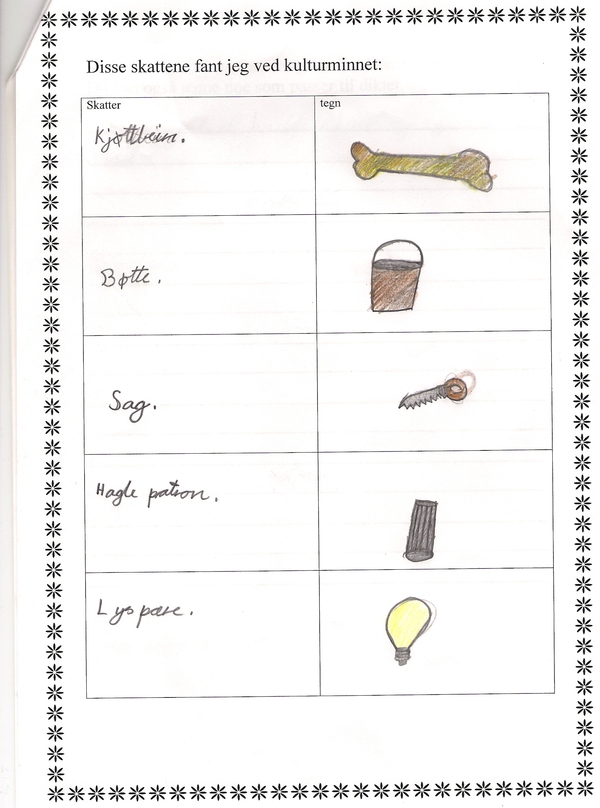 Disse skattene fant jeg ved kulturminnet:
Skatter
tegn
Kjøttbein.
Bøtte.
Sag.
Hagle patron.
Lys pære.